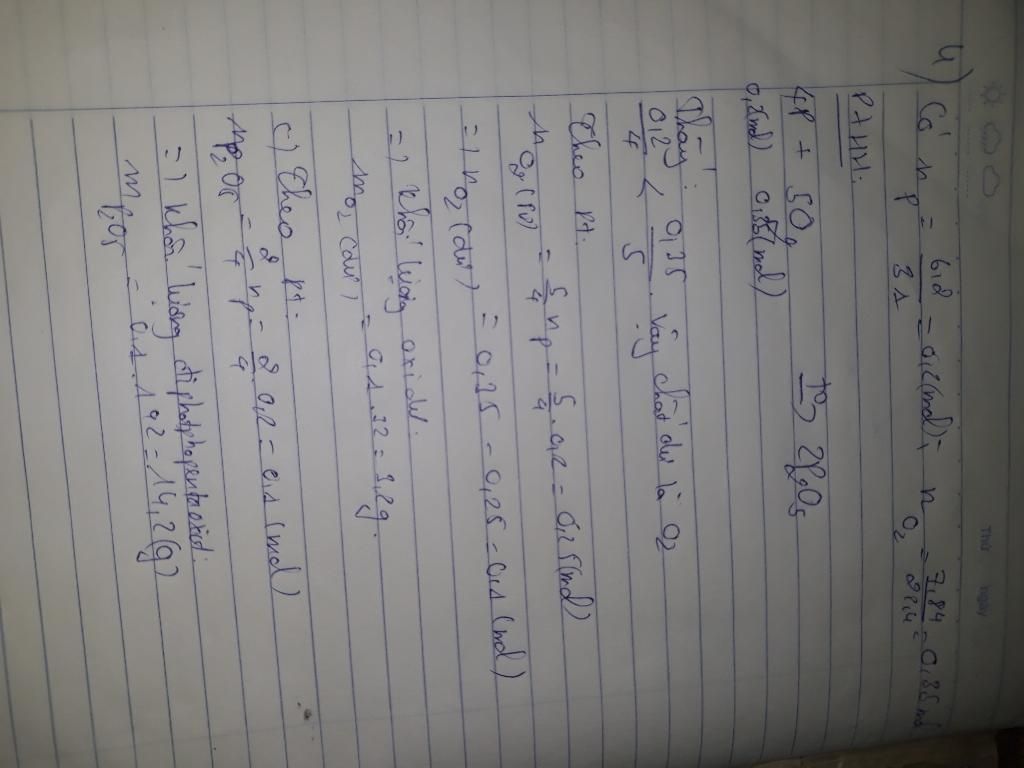 Thứ ngày
4)
Có n P = 6,2/31 = 0,2(mol); n O2 = 7,84/22,4 = 0,35 mol
PTHH:
4P + 5O2 t° → 2P2O5
0,2(mol) 0,35(mol)
Thấy: 0,2/4 < 0,35/5. Vậy chất dư là O2
Theo pt.
n O2(PƯ) = 5/4 n P = 5/4 . 0,2 = 0,25(mol)
=) n O2(dư) = 0,35 - 0,25 = 0,1 (mol)
=) Khối lượng oxi dư.
m O2(dư) = 0,1 . 32 = 3,2g.
c) Theo pt:
n P2O5 = 2/4 n P = 2/4 0,2 = 0,1 (mol)
=) Khối lượng điphotphopentaoxid:
m P2O5 = 0,1 . 142 = 14,2(g)